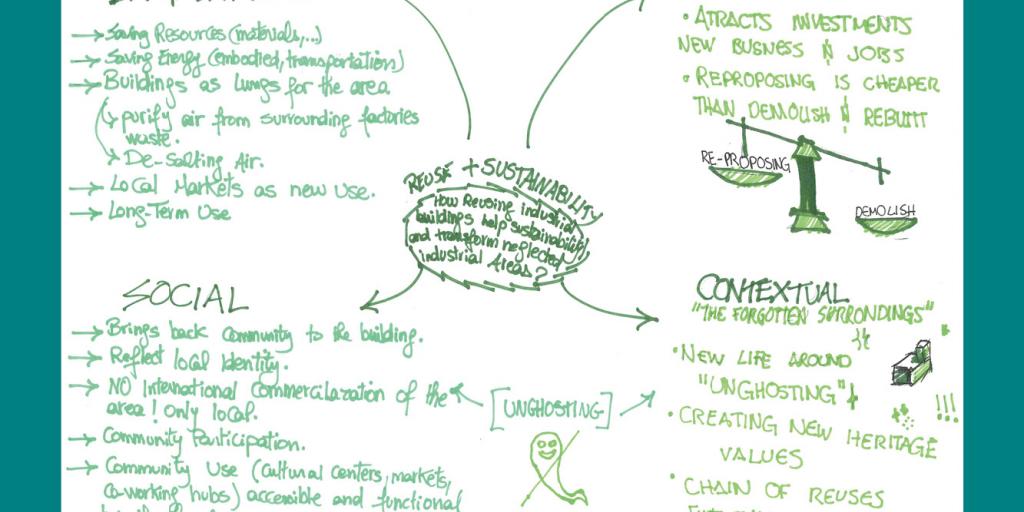 → Saving Resources (materials,...)
→ Saving Energy (embodied, transportation)
→ Buildings as Lungs for the area
purify air from surrounding factories
waste.
De-Salting Air.
→ Local Markets as new use.
→ Long-Term Use
• ATRACTS INVESTMENTS
NEW BUSNESS & JOBS
• REPROPOSING IS CHEAPER
THAN DEMOLISH & REBUITT
RE-PROPOSING
DEMOLISH
REUSE + SUSTAINABILITY
How Reusing industrial
buildings help sustainability
and transform neglected
industrial Areas?
SOCIAL
→ Brings back community to the building.
→ Reflect local Identity.
→ NO International Commercilazation of the
area! only local.
→ Community Participation.
→ Community Use (Cultural centers, markets,
Co-working hubs) accessible and functional
[UNGHOSTING]
CONTEXTUAL
"THE FORGOTTEN SURRONDINGS"
• NEW LIFE AROUND
"UNGHOSTING"
!!!
• CREATING NEW HERITAGE
VALUES
• CHAIN OF REUSES